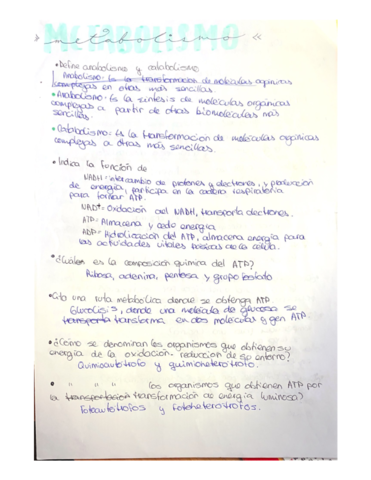 METABOLISMO
> metabolismo «
• Define anabolismo y catabolismo
Anabolismo: Es la transformacion de moléculas orgánicas
complejas en otras más sencillas.
• Anabolismo: Es la síntesis de moléculas orgánicas
complejas a partir de otras biomoléculas más
sencillas.
• Catabolismo: Es la transformacion de moléculas orgánicas
complejas a otras más sencillas.
• Indica la función de
NADH: intercambio de protones y electrones, y producción
de energía, participa en la cadena respiratoria
para formar ATP.
NAD+: Oxidación del NADH, transporta electrones.
ATP: Almacena y cede energía
ADP: del ATP, almacena energía para
las actividades vitales básicas de la célula.
• ¿Cuál es la composición química del ATP?
Ribosa, adenina, pentosa y grupo fosfato
• Cita una ruta metabólica donde se obtenga ATP
Glucolisis, donde una molécula de glucosa se
transporta transforma en dos moléculas y gen ATP.
• ¿Cómo se denominan los organismos que obtienen su
energía de la oxidación-reducción de su entorno?
Quimioautótrofo y quimioheterótrofo.
• " " " los organismos que obtienen ATP por
la transportacion transformación de energía luminosa?
Fotoautótrofos y fotoheterótrofos.